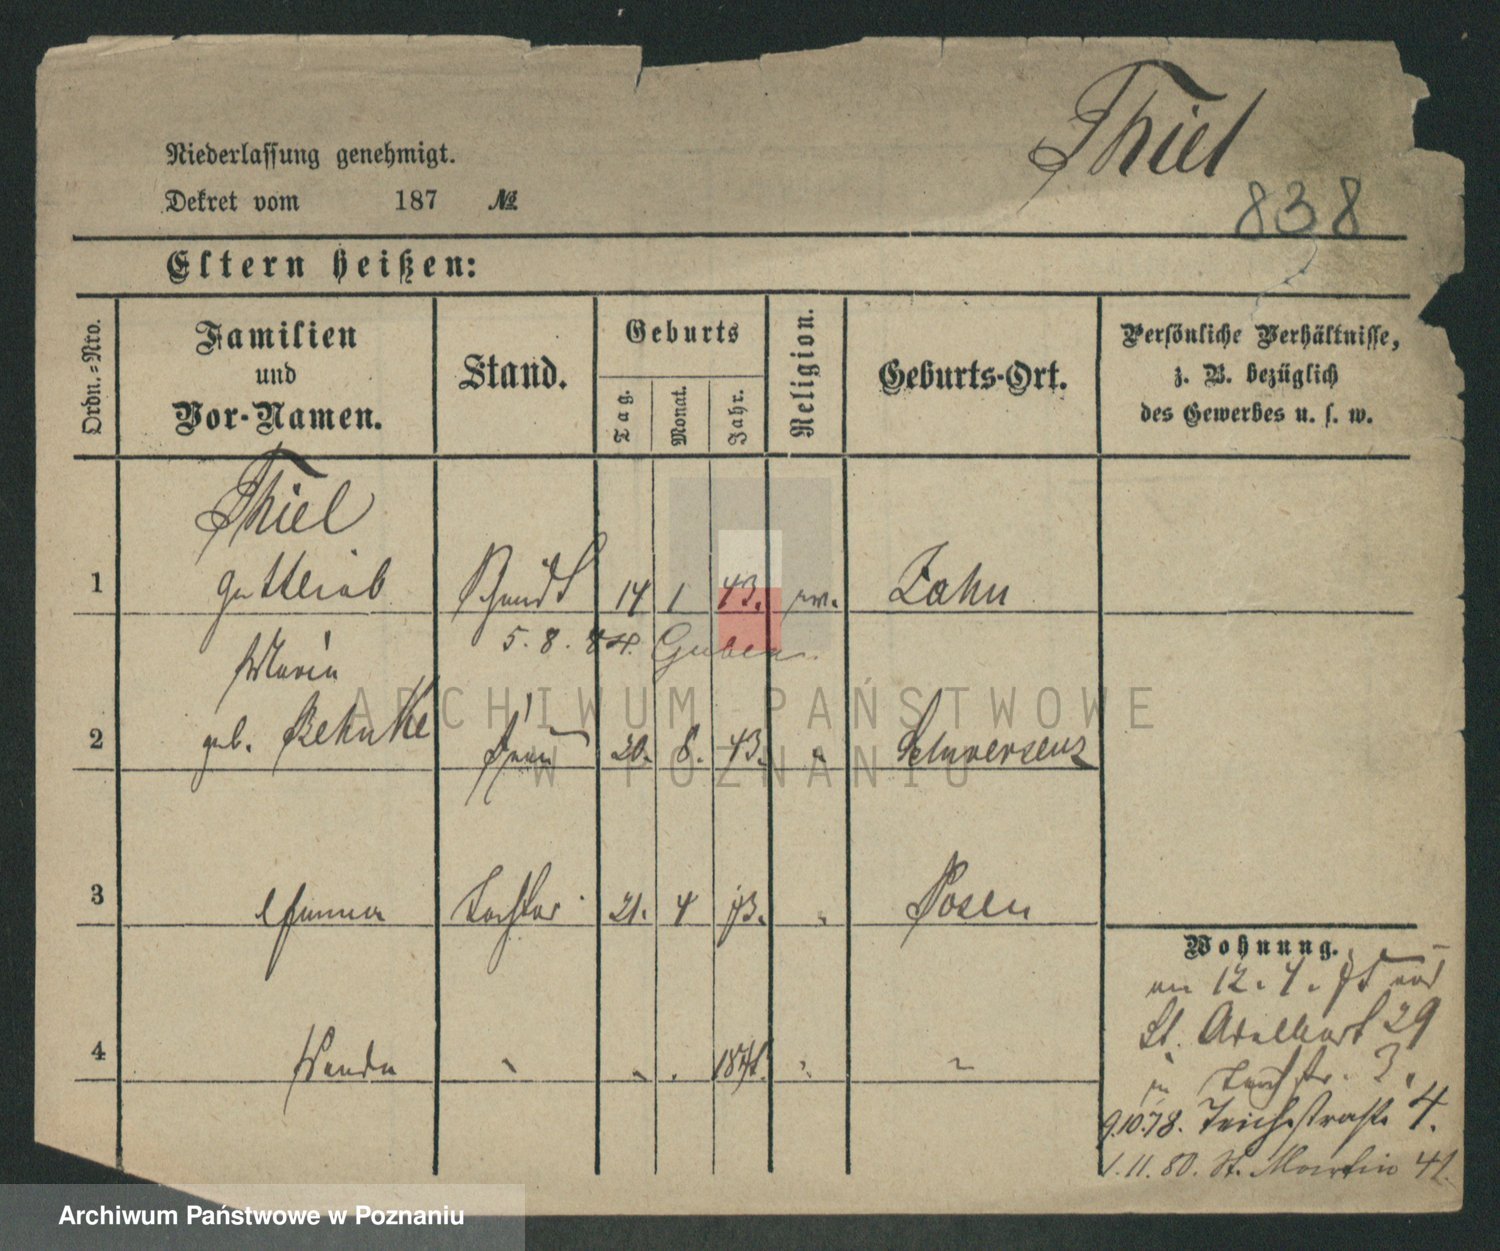 Thiel
838
Niederlassung genehmigt.
Dekret vom 187 №
Eltern heißen:
Ordn.-Nro.
Familien und Vor-Namen.
Stand.
Geburts
Tag.
Monat.
Jahr.
Religion.
Geburts-Ort.
Persönliche Verhältnisse,
z. B. bezüglich
des Gewerbes u. s. w.
Thiel
1 Gottlieb 14 1 43. ew. Zahn
5. 8. 84. Guben
Maria
2 geb. Behnke Frau 20. 8. 43. " Schwersenz
3 Emma Tochter 21. 4 73. " Posen
4 Wanda " " . 1874. " "
Wohnung.
12. 4. 75
St. Adalbert 29
3.
9.10.78. Teichstraße 4.
1.11.80. St. Martin 41
ARCHIWUM PAŃSTWOWE
W POZNANIU
Archiwum Państwowe w Poznaniu